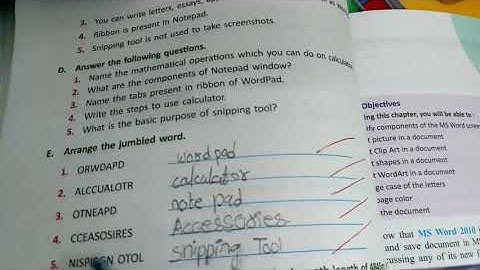 3. You can write letters, essays,
4. Ribbon is present in Notepad.
5. Snipping tool is not used to take screenshots.
D. Answer the following questions.
1. Name the mathematical operations which you can do on calculator.
2. What are the components of Notepad window?
3. Name the tabs present in ribbon of WordPad.
4. Write the steps to use calculator.
5. What is the basic purpose of snipping tool?
E. Arrange the jumbled word.
1. ORWDAPD wordpad
2. ALCCUALOTR calculator
3. OTNEAPD note pad
4. CCEASOSIRES Accessories
5. OTOL snipping Tool
Objectives
ing this chapter, you will be able to
fy components of the MS Word screen
t picture in a document
t Clip Art in a document
t shapes in a document
t WordArt in a document
ge case of the letters
page color
the document
ow that MS Word 2010
and save document in M
cussing any of its new
length of